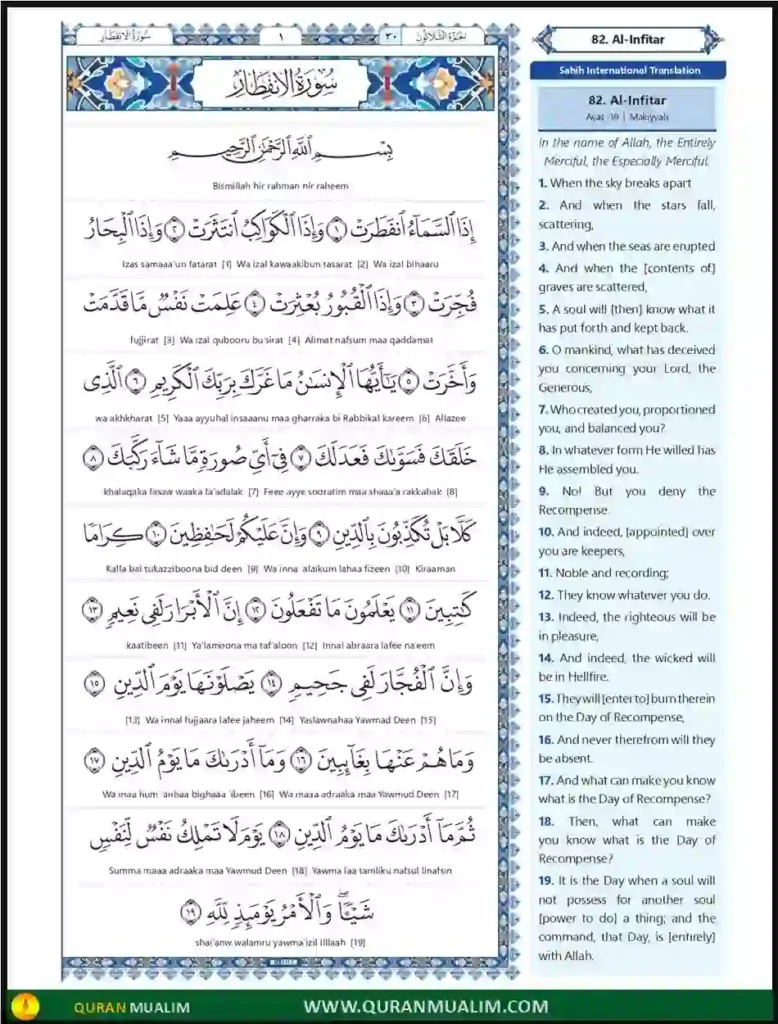 سُورَةُ الإِنفِطَار
١
٣٠
الجُزءُ الثَّلَاثُونَ
سُورَةُ الإِنفِطَارِ
بِسْمِ اللَّهِ الرَّحْمَٰنِ الرَّحِيمِ
Bismillah hir rahman nir raheem
إِذَا السَّمَاءُ انفَطَرَتْ ١ وَإِذَا الْكَوَاكِبُ انتَثَرَتْ ٢ وَإِذَا الْبِحَارُ
Izas samaaa'un fatarat [1] Wa izal kawaakibun tasarat [2] Wa izal bihaaru
فُجِّرَتْ ٣ وَإِذَا الْقُبُورُ بُعْثِرَتْ ٤ عَلِمَتْ نَفْسٌ مَّا قَدَّمَتْ
fujjirat [3] Wa izal qubooru bu'sirat [4] Alimat nafsum maa qaddamat
وَأَخَّرَتْ ٥ يَٰأَيُّهَا الْإِنسَٰنُ مَا غَرَّكَ بِرَبِّكَ الْكَرِيمِ ٦ الَّذِى
wa akhkharat [5] Yaaa ayyuhal insaaanu maa gharraka bi Rabbikal kareem [6] Allazee
خَلَقَكَ فَسَوَّىٰكَ فَعَدَلَكَ ٧ فِىٓ أَىِّ صُورَةٍ مَّا شَآءَ رَكَّبَكَ ٨
khalaqaka fasaw waaka fa'adalak [7] Feee ayye sooratim maa shaaa'a rakkabak [8]
كَلَّا بَلْ تُكَذِّبُونَ بِالدِّينِ ٩ وَإِنَّ عَلَيْكُمْ لَحَٰفِظِينَ ١٠ كِرَامًا
Kalla bal tukazziboona bid deen [9] Wa inna alaikum lahaa fizeen [10] Kiraaman
كَٰتِبِينَ ١١ يَعْلَمُونَ مَا تَفْعَلُونَ ١٢ إِنَّ الْأَبْرَارَ لَفِى نَعِيمٍ ١٣
kaatibeen [11] Ya'lamoona ma taf'aloon [12] Innal abraara lafee na'eem
وَإِنَّ الْفُجَّارَ لَفِى جَحِيمٍ ١٤ يَصْلَوْنَهَا يَوْمَ الدِّينِ ١٥
[13] Wa innal fujjaara lafee jaheem [14] Yaslawnahaa Yawmad Deen [15]
وَمَا هُمْ عَنْهَا بِغَآئِبِينَ ١٦ وَمَآ أَدْرَىٰكَ مَا يَوْمُ الدِّينِ ١٧
Wa maa hum 'anhaa bighaaa 'ibeen [16] Wa maaa adraaka maa Yawmud Deen [17]
ثُمَّ مَآ أَدْرَىٰكَ مَا يَوْمُ الدِّينِ ١٨ يَوْمَ لَا تَمْلِكُ نَفْسٌ لِّنَفْسٍ
Summa maaa adraaka maa Yawmud Deen [18] Yawma laa tamliku nafsul linafsin
شَيْـًٔا ۖ وَالْأَمْرُ يَوْمَئِذٍ لِّلَّهِ ١٩
shai'anw walamru yawma'izil lillaah [19]
82. Al-Infitar
Sahih International Translation
82. Al-Infitar
Ayat 19 | Makiyyah
In the name of Allah, the Entirely
Merciful, the Especially Merciful.
1. When the sky breaks apart
2. And when the stars fall,
scattering,
3. And when the seas are erupted
4. And when the [contents of]
graves are scattered,
5. A soul will [then] know what it
has put forth and kept back.
6. O mankind, what has deceived
you concerning your Lord, the
Generous,
7. Who created you, proportioned
you, and balanced you?
8. In whatever form He willed has
He assembled you.
9. No! But you deny the
Recompense.
10. And indeed, [appointed] over
you are keepers,
11. Noble and recording;
12. They know whatever you do.
13. Indeed, the righteous will be
in pleasure,
14. And indeed, the wicked will
be in Hellfire.
15. They will [enter to] burn therein
on the Day of Recompense,
16. And never therefrom will they
be absent.
17. And what can make you know
what is the Day of Recompense?
18. Then, what can make
you know what is the Day of
Recompense?
19. It is the Day when a soul will
not possess for another soul
[power to do] a thing; and the
command, that Day, is [entirely]
with Allah.
QURAN MUALIM
WWW.QURANMUALIM.COM